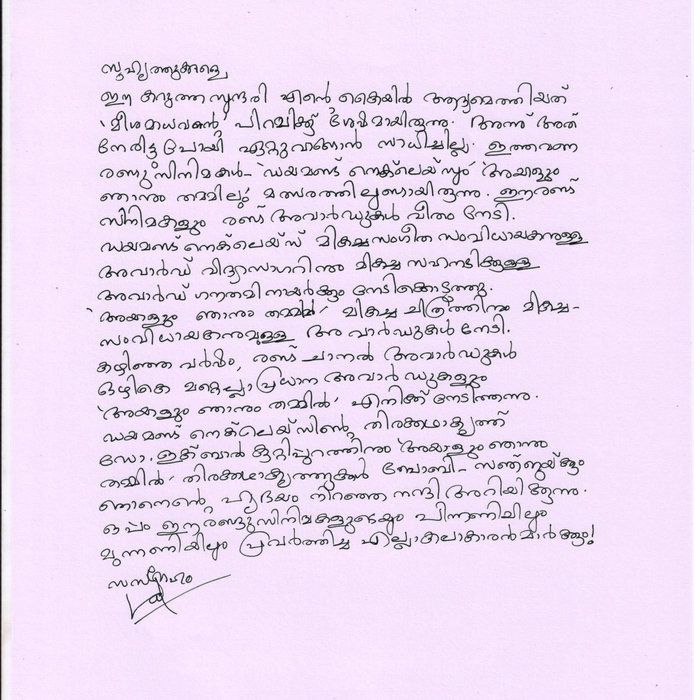 സുഹൃത്തുക്കളെ,
ഈ കറുത്ത സുന്ദരി എന്റെ കൈയിൽ ആദ്യമെത്തിയത്
'മീശമാധവന്റെ' പിറവിക്ക് ശേഷമായിരുന്നു. അന്ന് അത്
നേരിട്ടു പോയി ഏറ്റുവാങ്ങാൻ സാധിച്ചില്ല. ഇത്തവണ
രണ്ടു സിനിമകൾ- 'ഡയമണ്ട് നെക്ലെയ്സും' 'അയാളും
ഞാനും തമ്മിലും' മത്സരത്തിലുണ്ടായിരുന്നു. ഈ രണ്ട്
സിനിമകളും രണ്ട് അവാർഡുകൾ വീതം നേടി.
ഡയമണ്ട് നെക്ലെയ്സ് മികച്ച സംഗീത സംവിധായകനുള്ള
അവാർഡ് വിദ്യാസാഗറിനും മികച്ച സഹനടിക്കുള്ള
അവാർഡ് ഗൗതമി നായർക്കും നേടിക്കൊടുത്തു.
'അയാളും ഞാനും തമ്മിൽ' മികച്ച ചിത്രത്തിനും മികച്ച-
സംവിധായകനുമുള്ള അവാർഡുകൾ നേടി.
കഴിഞ്ഞ വർഷം, രണ്ട് ചാനൽ അവാർഡുകൾ
ഒഴികെ മറ്റെല്ലാ പ്രധാന അവാർഡുകളും
'അയാളും ഞാനും തമ്മിൽ' എനിക്ക് നേടിത്തന്നു.
ഡയമണ്ട് നെക്ലെയ്സിന്റെ തിരക്കഥാകൃത്ത്
ഡോ. ഇക്ബാൽ കുറ്റിപ്പുറത്തിനും 'അയാളും ഞാനും
തമ്മിൽ' തിരക്കഥാകൃത്തുക്കൾ ബോബി- സഞ്ജയ്ക്കും
ഞാനെന്റെ ഹൃദയം നിറഞ്ഞ നന്ദി അറിയിക്കുന്നു.
ഒപ്പം ഈ രണ്ടു സിനിമകളുടെയും പിന്നണിയിലും
മുന്നണിയിലും പ്രവർത്തിച്ച എല്ലാ കലാകാരൻമാർക്കും!
സസ്നേഹം